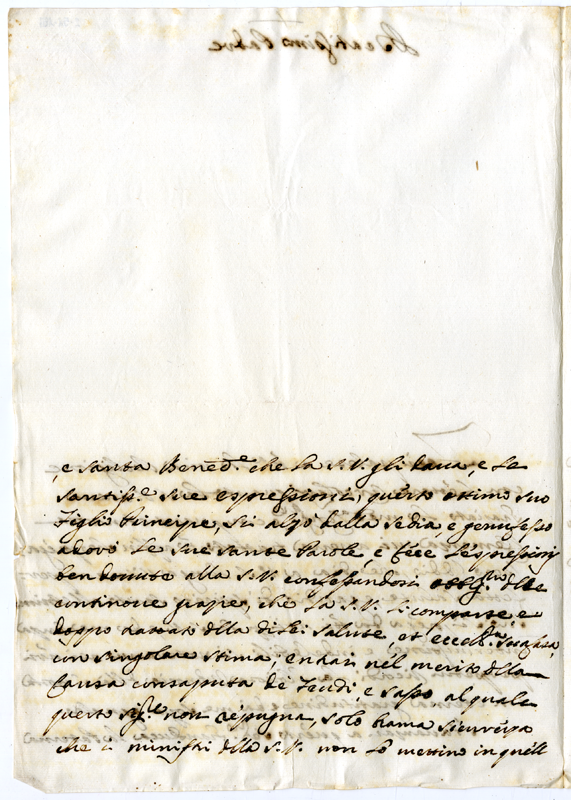 e santa Bened.e che la S.V. gli dava, e le
santiss.e sue espressioni, questo ottimo suo
figlio Principe, si alzò dalla sedia, e genuflesso
adorò le sue sante Parole, e fece l'espressioni
ben dovute alla S.V. confessandosi obblig.mo delle
continoue grazie, che la S.V. li comparte, e
doppo trattati della di lei salute, et eccel.
con singolare stima, entrai nel merito della
Causa consaputa de' feudi, e sasso al quale
questo sig.re non repugna, solo brama sicurezza
che i ministri della S.V. non lo mettino in quell